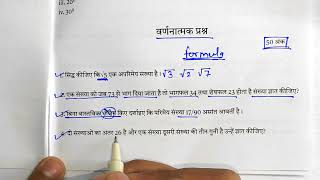 iv. 30°
वर्णनात्मक प्रश्न
50 अंक
formula
सिद्ध कीजिए कि √5 एक अपरिमेय संख्या है। √3 √2 √7
एक संख्या को जब 73 से भाग दिया जाता है तो भागफल 34 तथा शेषफल 23 होता है संख्या ज्ञात कीजिए?
बिना वास्तविक किए दर्शाइए कि परिमेय संख्या 17/90 असांत आवर्ती है।
दो संख्याओं का अंतर 26 है और एक संख्या दूसरी संख्या की तीन गुनी है उन्हें ज्ञात कीजिए?